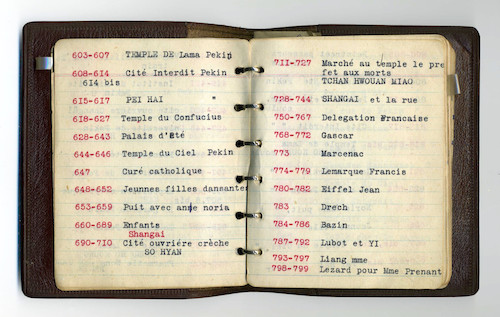 603-607 TEMPLE DE Lama Pekin
608-614 Cité Interdit Pekin
614 bis
615-617 PEI HAI "
618-627 Temple du Confucius
628-643 Palais d'été
644-646 Temple du Ciel Pekin
647 Curé catholique
648-652 Jeunnes filles dansantes
653-659 Puit avec ane noria
660-689 Enfants
Shangai
690-710 Cité ouvriére crèche
SO HYAN
711-727 Marché au temple le pre
fet aux morts
TCHAN HWOUAN MIAO
728-744 SHANGAI et la rue
750-767 Delegation Francaise
768-772 Gascar
773 Marcenac
774-779 Lemarque Francis
780-782 Eiffel Jean
783 Drech
784-786 Bazin
787-792 Lubot et YI
793-797 Liang mme
798-799 Lezard pour Mme Prenant